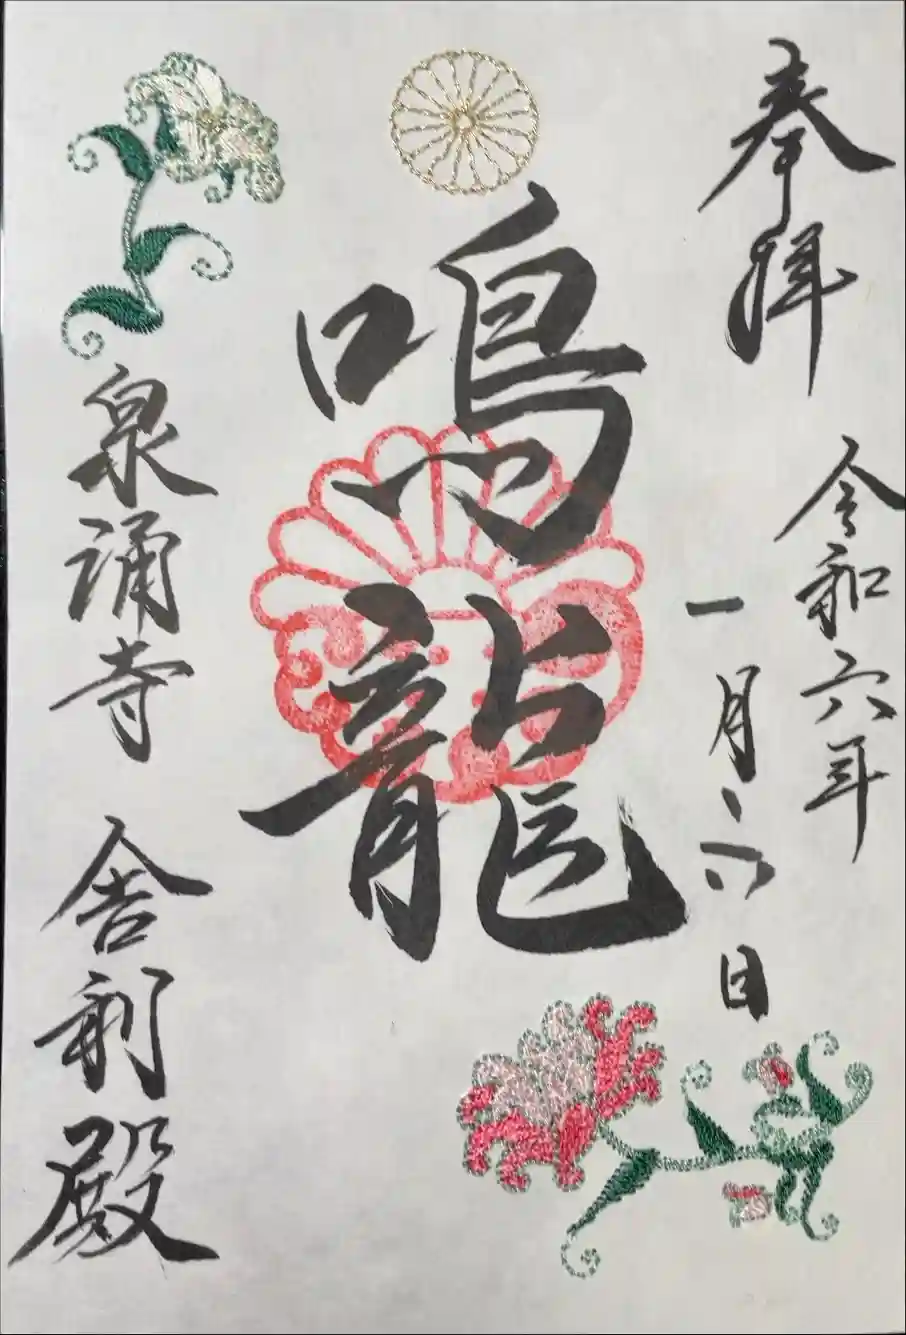 奉拝
令和六年
一月六日
鳴龍
泉涌寺
舎利殿